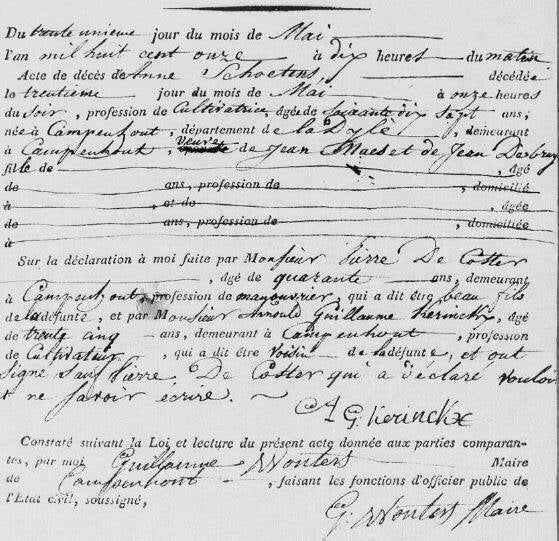 Du trente unieme jour du mois de Mai
l'an mil huit cent onze à dix heures du matin
Acte de décès de Anne Schoetens décédée
le trentieme jour du mois de Mai à onze heures
du soir, profession de Cultivatrice, âgée de soixante dix sept ans,
née à Campenhout, département de la Dyle, demeurant
à Campenhout, veuve de Jean Maes et de Jean
fille de , âgé
de ans, profession de , domicilié
à , et de , âgée
de ans, profession de , domiciliée
à
Sur la déclaration à moi faite par Monsieur Pierre De Coster
, âgé de quarante ans, demeurant
à Campenhout, profession de manouvrier, qui a dit être beau fils
de la défunte, et par Monsieur Arnould Guillaume Kerinckx, âgé
de trente cinq ans, demeurant à Campenhout, profession
de Cultivateur, qui a dit être voisin de la défunte, et ont
signé sauf Pierre De Coster qui a déclaré
ne savoir ecrire.
A G. Kerinckx
Constaté suivant la Loi et lecture du présent acte donnée aux parties comparan-
tes, par moi Guillaume Wouters Maire
de Campenhout, faisant les fonctions d'officier public de
l'Etat civil, soussigné,
G. Wouters Maire